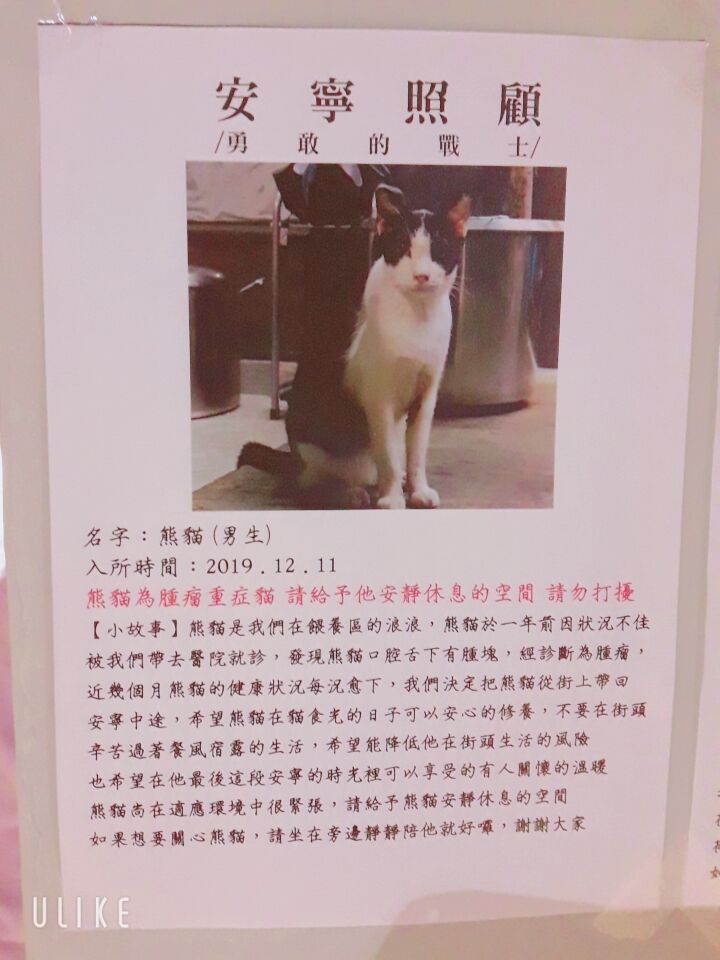 安寧照顧
/勇敢的戰士/
名字：熊貓(男生)
入所時間：2019.12.11
熊貓為腫瘤重症貓 請給予他安靜休息的空間 請勿打擾
【小故事】熊貓是我們在餵養區的浪浪，熊貓於一年前因狀況不佳
被我們帶去醫院就診，發現熊貓口腔舌下有腫塊，經診斷為腫瘤，
近幾個月熊貓的健康狀況每況愈下，我們決定把熊貓從街上帶回
安寧中途，希望熊貓在貓食光的日子可以安心的修養，不要在街頭
辛苦過著餐風宿露的生活，希望能降低他在街頭生活的風險
也希望在他最後這段安寧的時光裡可以享受的有人關懷的溫暖
熊貓尚在適應環境中很緊張，請給予熊貓安靜休息的空間
如果想要關心熊貓，請坐在旁邊靜靜陪他就好囉，謝謝大家
ULIKE